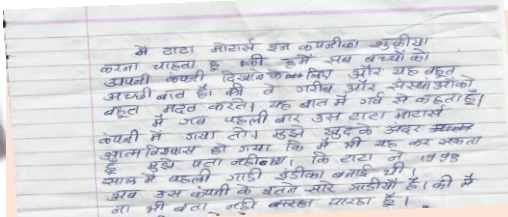 मे टाटा मोटार्स इन कंपनीका शुक्रीया
करना चाहता हू की हमे सब बच्चों को
अपनी कंपनी दिखाने के लिए और यह बहुत
अच्छी बात है। की वे गरीब और संस्थाओको
बहुत मदत करते। यह बात मे गर्व से कहता हू।
मे जब पहली बार उस टाटा मोटार्स
कंपनी मे गया तो। मुझे खुद के अंदर
आत्मविश्वास हो गया कि मे भी यह कर सकता
हू मुझे पता नही था। कि टाटा ने 1998
साल मे पहली गाडी इंडीका बनाई थी।
अब उस कंपनी के इतने सारे गाडीयाँ है। की मे
ना भी बता नही पारहा हू।